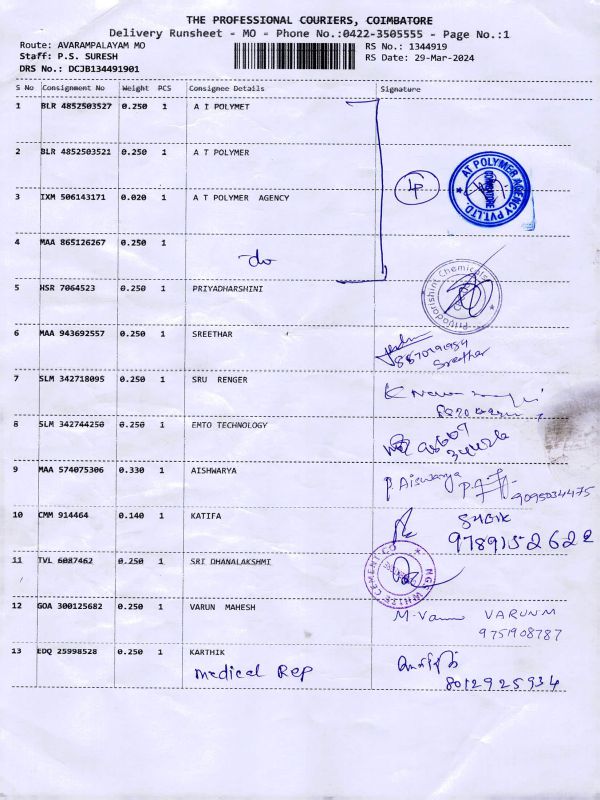 THE PROFESSIONAL COURIERS, COIMBATORE
Delivery Runsheet - MO - Phone No.:0422-3505555 - Page No.:1
Route: AVARAMPALAYAM MO RS No.: 1344919
Staff: P.S. SURESH RS Date: 29-Mar-2024
DRS No.: DCJB134491901
S No Consignment No Weight PCS Consignee Details Signature
1 BLR 4852503527 0.250 1 A I POLYMET
2 BLR 4852503521 0.250 1 A T POLYMER
AT POLYMER AGENCY PVT.LTD.
COIMBATORE
3 IXM 506143171 0.020 1 A T POLYMER AGENCY
4 MAA 865126267 0.250 1
do
5 HSR 7064523 0.250 1 PRIYADHARSHINI
Priyadarishini Chemicals
6 MAA 943692557 0.250 1 SREETHAR
Sreethar
7 SLM 342718095 0.250 1 SRU RENGER
8 SLM 342744250 0.250 1 EMTO TECHNOLOGY
9 MAA 574075306 0.330 1 AISHWARYA
P. Aiswarya
9095034475
10 CMM 914464 0.140 1 KATIFA
9789152622
11 TVL 6087462 0.250 1 SRI DHANALAKSHMI
NGS WHITE CEMENT CO
12 GOA 300125682 0.250 1 VARUN MAHESH
VARUN M
9751908787
13 EDQ 25998528 0.250 1 KARTHIK
Medical Rep
8012925934